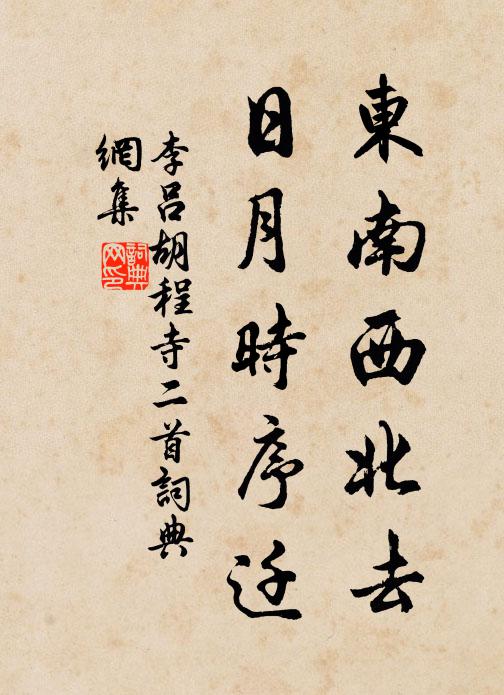 東南西北去
日月時序迁
李吕胡程寺二首詞典
網集
詞典网印